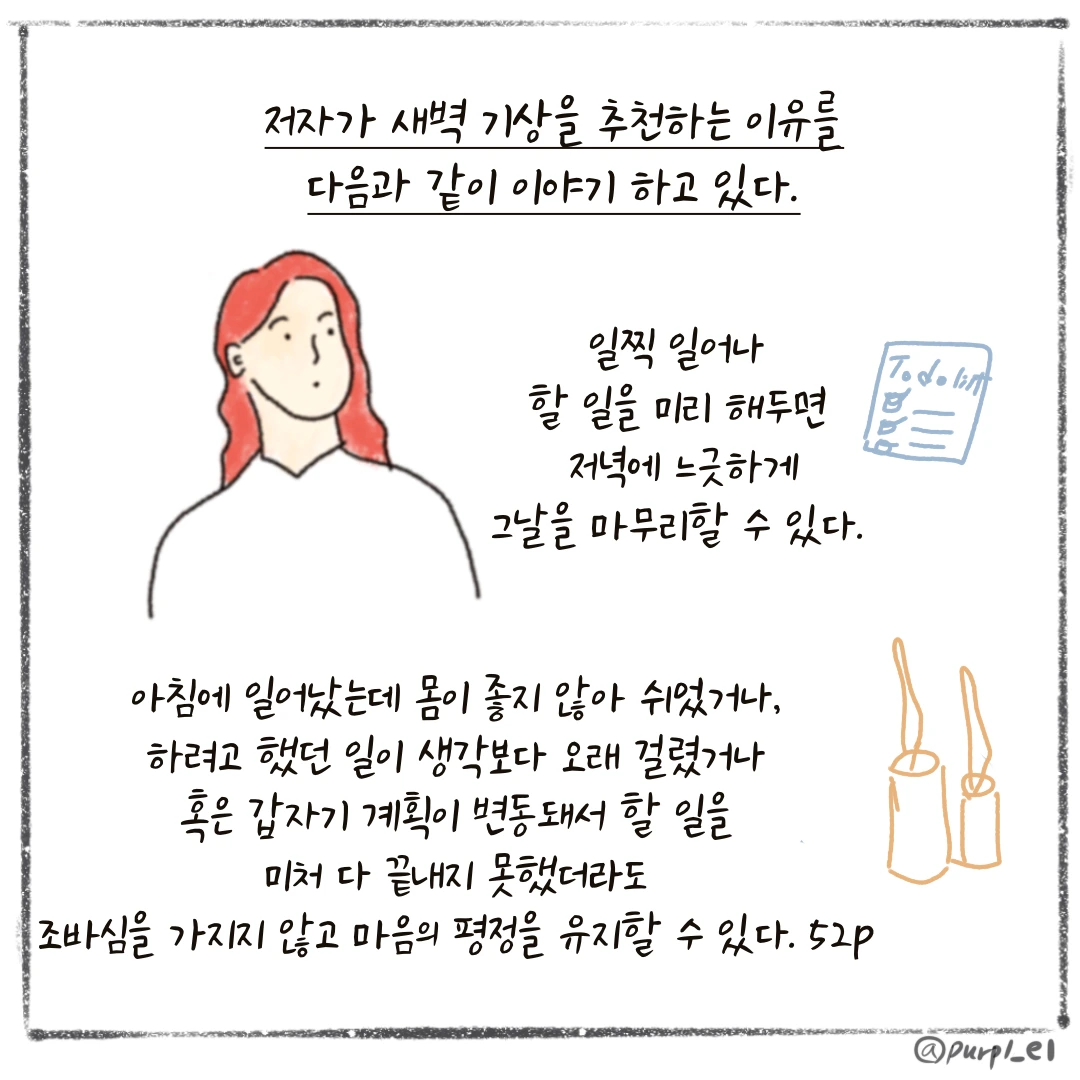 저자가 새벽 기상을 추천하는 이유를
다음과 같이 이야기 하고 있다.
일찍 일어나
할 일을 미리 해두면
저녁에 느긋하게
그날을 마무리할 수 있다.
To do list
아침에 일어났는데 몸이 좋지 않아 쉬었거나,
하려고 했던 일이 생각보다 오래 걸렸거나
혹은 갑자기 계획이 변동돼서 할 일을
미처 다 끝내지 못했더라도
조바심을 가지지 않고 마음의 평정을 유지할 수 있다. 52p
@purpl_el